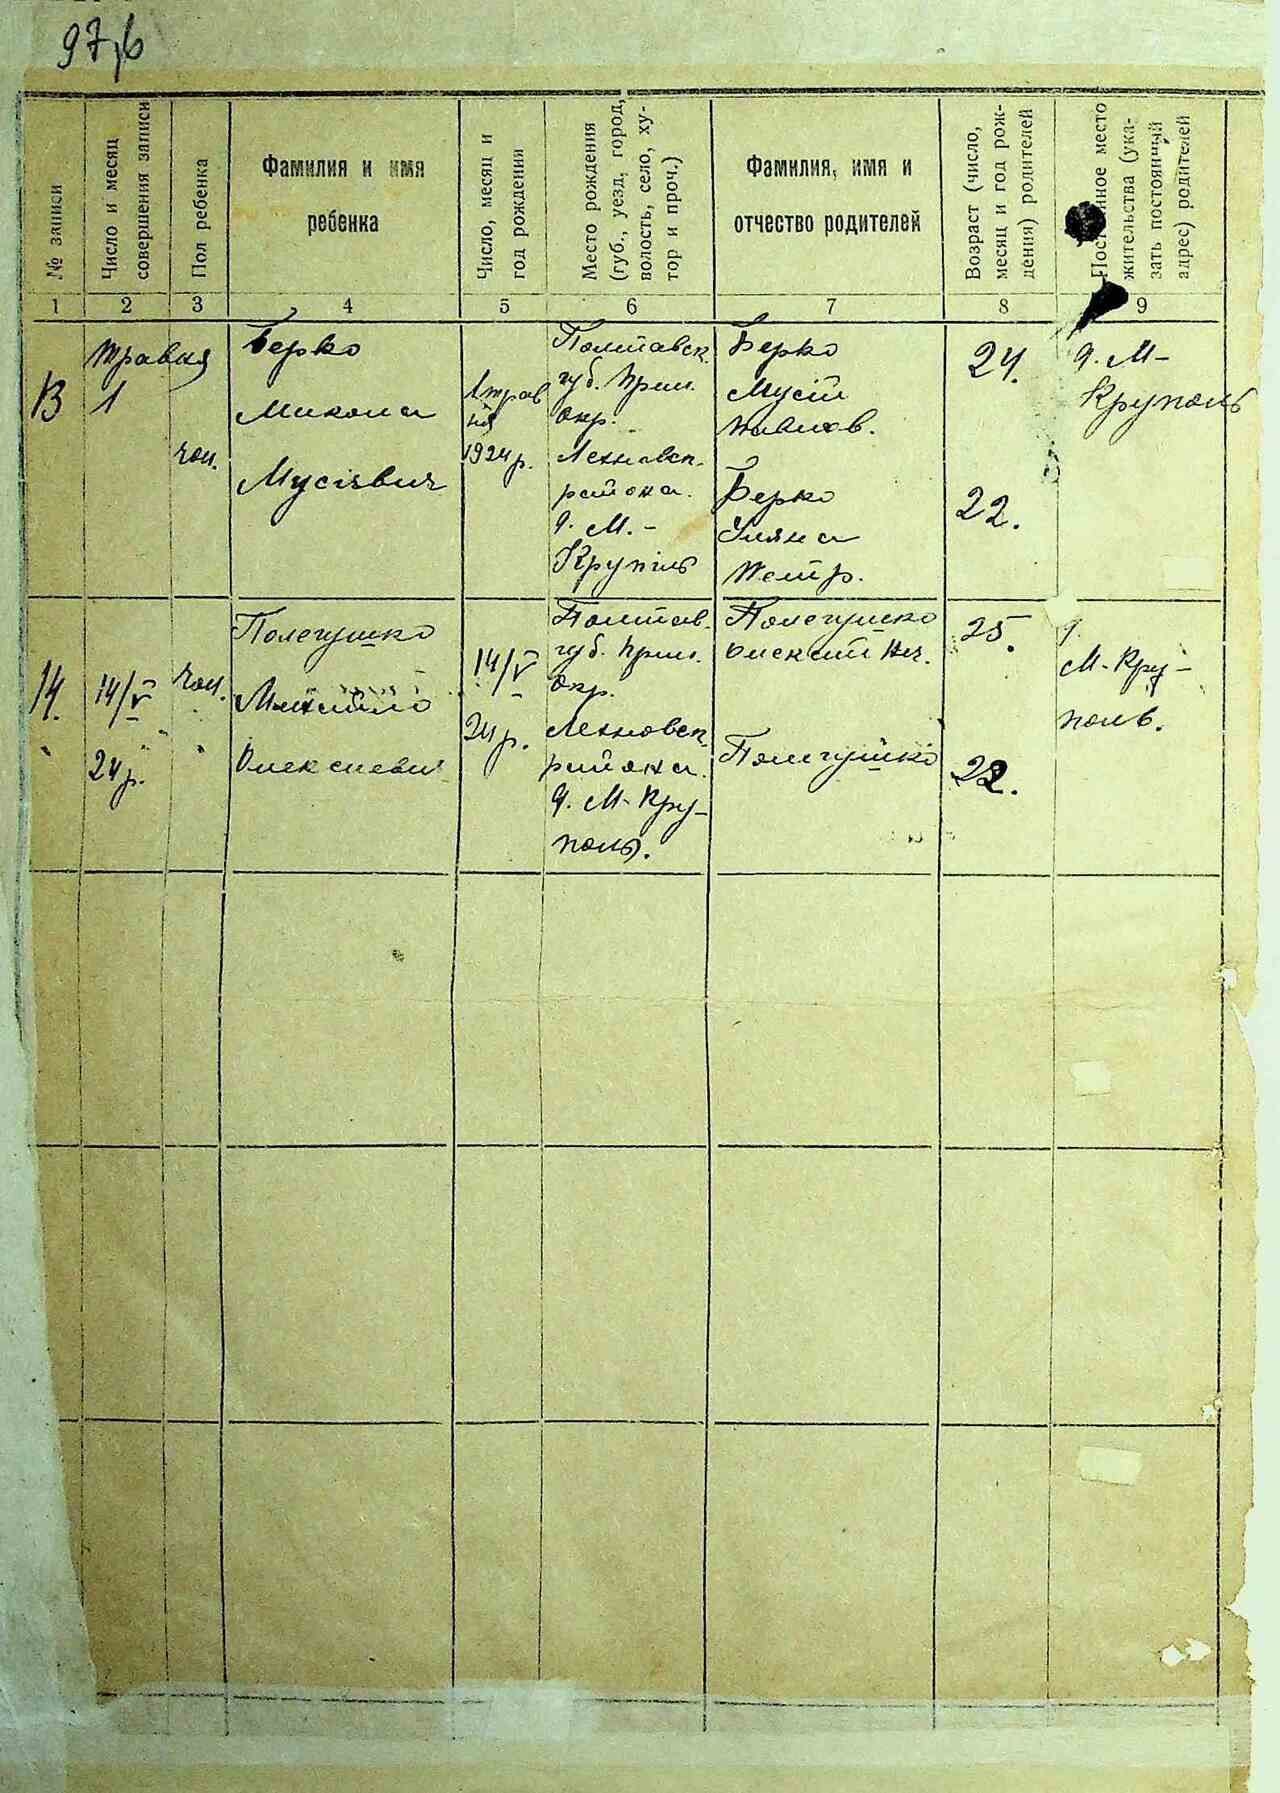 97,б
№ записи
Число и месяц
совершения записи
Пол ребенка
Фамилия и имя
ребенка
Число, месяц и
год рождения
Место рождения
(губ., уезд, город,
волость, село, ху-
тор и проч.)
Фамилия, имя и
отчество родителей
Возраст (число,
месяц и год рож-
дения) родителей
место
жительства (ука-
зать постоянный
адрес) родителей
1 2 3 4 5 6 7 8 9
13
травня
1
чол.
Берко
Микола
Мусієвич
1 трав
ня
1924 р.
Полтавск.
губ. Прил.
окр.
района.
д. М.-
Крупіль
Берко
Мусій
Берко
Уляна
Петр.
24.
22.
д. М-
Круполь
14.
14/V
24 р.
чол.
Полегушко
Михайло
Олексиевич
14/V
24 р.
Полтав.
губ. Прил.
окр.
района.
д. М-Кру-
поль.
Полегушко
Олексий
Полегушко
25.
22.
д.
М-Кру-
поль.